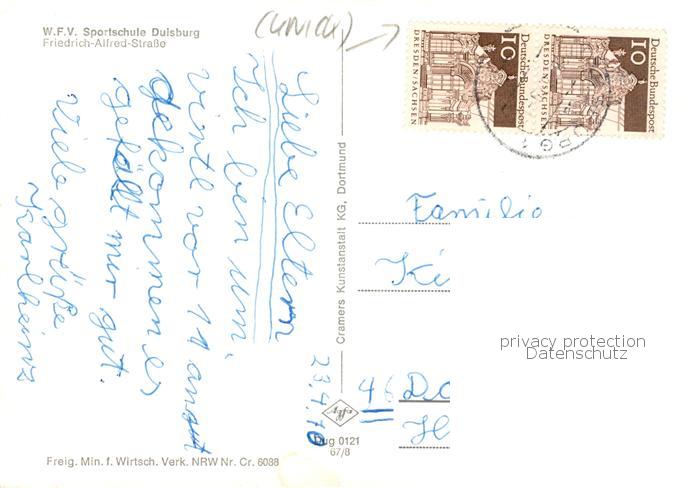 W.F.V. Sportschule Duisburg
Friedrich-Alfred-Straße
Liebe Eltern
Ich ben um.
virtl vor 11 anget
gekommen es
gefällt mir gut.
Viele grüße
Karlheinz
23.4.70
Cramers Kunstanstalt KG, Dortmund
Dug 0121
67/8
Freig. Min. f. Wirtsch. Verk. NRW Nr. Cr. 6088
10
Deutsche Bundespost
DRESDEN/SACHSEN
10
Deutsche Bundespost
DRESDEN/SACHSEN
Familie
Ki
46 Do
privacy protection
Datenschutz